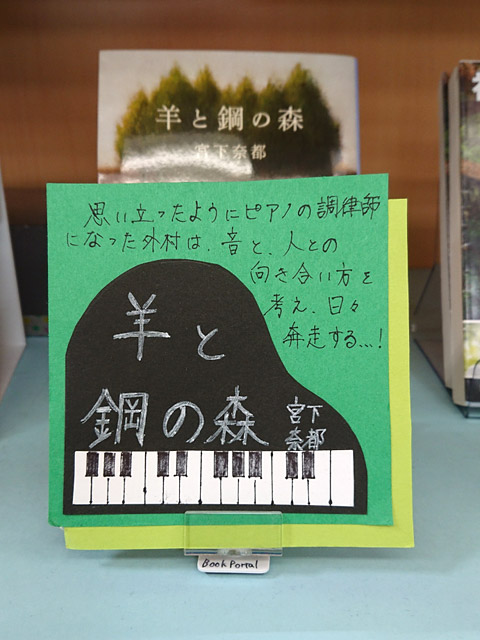 羊と鋼の森
宮下奈都
思い立ったようにピアノの調律師
になった外村は、音と、人との
向き合い方を
考え、日々
奔走する…!
羊と
鋼の森
宮下
奈都
Book Portal